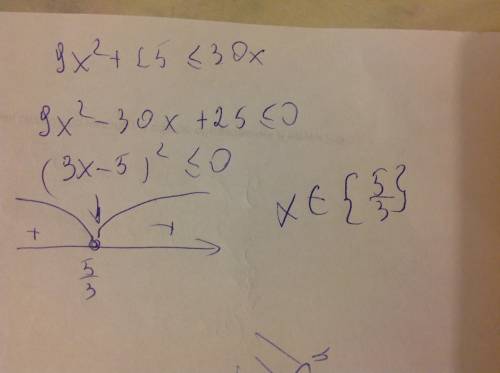 9x² + 25 ≤ 30x
9x² - 30x + 25 ≤ 0
(3x - 5)² ≤ 0
x ∈ {5/3}
+ +
5/3